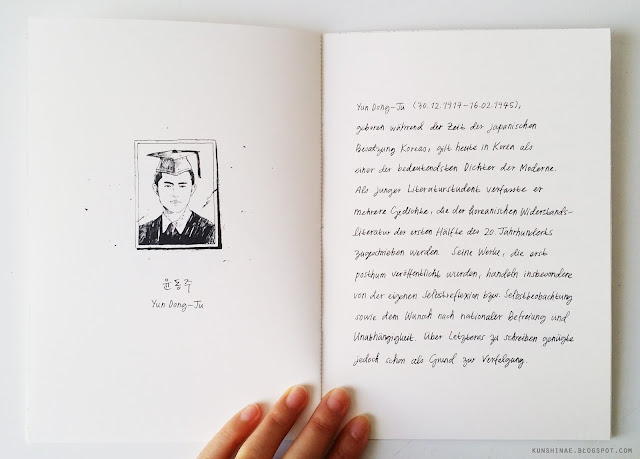 윤동주
Yun Dong-Ju
Yun Dong-Ju (30.12.1917-16.02.1945),
geboren während der Zeit der japanischen
Besatzung Koreas, gilt heute in Korea als
einer der bedeutendsten Dichter der Moderne.
Als junger Literaturstudent verfasste er
mehrere Gedichte, die der koreanischen Widerstands-
literatur der ersten Hälfte des 20. Jahrhunderts
zugeschrieben werden. Seine Werke, die erst
posthum veröffentlicht wurden, handeln insbesondere
von der eigenen Selbstreflexion bzw. Selbstbeobachtung
sowie dem Wunsch nach nationaler Befreiung und
Unabhängigkeit. Über Letzteres zu schreiben genügte
jedoch schon als Grund zur Verfolgung.
KUNSHINAE.BLOGSPOT.COM